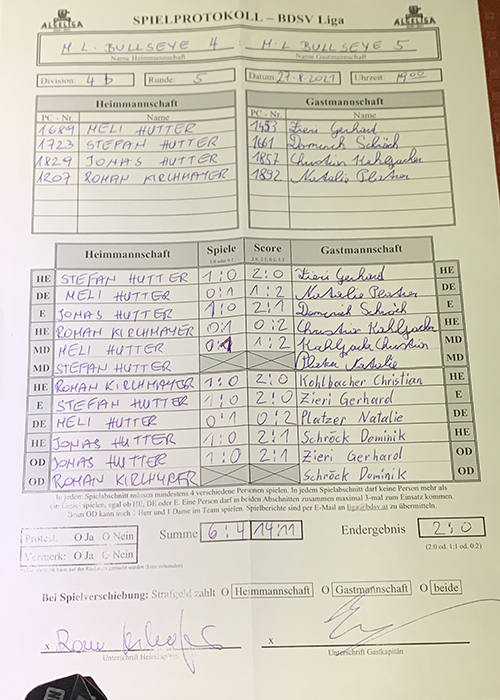 ALSELISA SPIELPROTOKOLL – BDSV Liga ALSELISA
M.L. BULLSEYE 4 M.L. BULLSEYE 5
Name Heimmannschaft Name Gastmannschaft
Division: 4 b Runde: 5 Datum: 27.8.2021 Uhrzeit: 19:00
Heimmannschaft Gastmannschaft
PC - Nr. Name PC - Nr. Name
1689 MELI HUTTER 1453 Zieri Gerhard
1723 STEFAN HUTTER 1661 Dominik Schröck
1829 JONAS HUTTER 1857 Christian Kohlbacher
1207 ROMAN KIRCHMAYER 1892 Natalie Platzer
Heimmannschaft Spiele Score Gastmannschaft
1:0 oder 0:1 2:0, 2:1, 0:2, 1:2
HE STEFAN HUTTER 1:0 2:0 Zieri Gerhard HE
DE MELI HUTTER 0:1 1:2 Natalie Platzer DE
E JONAS HUTTER 1:0 2:1 Dominik Schröck E
HE ROMAN KIRCHMAYER 0:1 0:2 Christian Kohlbacher HE
MD MELI HUTTER 0:1 1:2 Christian MD
MD STEFAN HUTTER Natalie MD
HE ROMAN KIRCHMAYER 1:0 2:0 Kohlbacher Christian HE
E STEFAN HUTTER 1:0 2:0 Zieri Gerhard E
DE MELI HUTTER 0:1 0:2 Platzer Natalie DE
HE JONAS HUTTER 1:0 2:1 Schröck Dominik HE
OD JONAS HUTTER 1:0 2:1 Zieri Gerhard OD
OD ROMAN Schröck Dominik OD
In jedem Spielabschnitt müssen mindestens 4 verschiedene Personen spielen. In jedem Spielabschnitt darf keine Person mehr als
ein Einzel spielen, egal ob HE, DE oder E. Eine Person darf in beiden Abschnitten zusammen maximal 3-mal zum Einsatz kommen.
Beim OD kann auch 1 Herr und 1 Dame im Team spielen. Spielberichte sind per E-Mail an liga@bdsv.at zu übermitteln.
Protest: O Ja O Nein Summe 6:4 14:11 Endergebnis 2:0
Vermerk: O Ja O Nein (2:0 od. 1:1 od. 0:2)
Bei Spielverschiebung: Strafgeld zahlt O Heimmannschaft O Gastmannschaft O beide
x x
Unterschrift Heimkapitän Unterschrift Gastkapitän